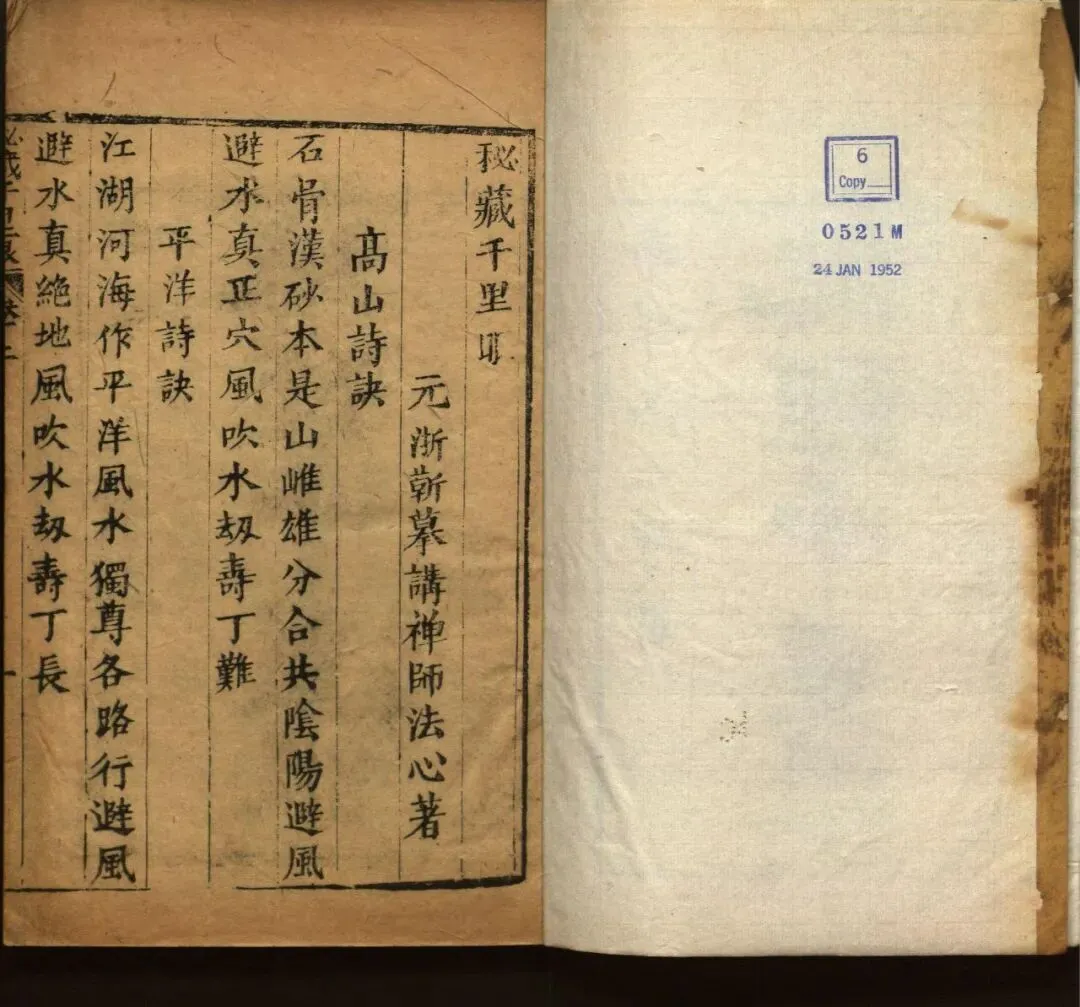 6
Copy
0521M
24 JAN 1952
秘藏千里
元浙靳慕講禅師法心著
髙山詩訣
石骨漢砂本是山雌雄分合共陰陽避風
避水真正穴風吹水刼壽丁難
平洋詩訣
江湖河海作平洋風水獨尊各路行避風
避水真絕地風吹水刼壽丁長